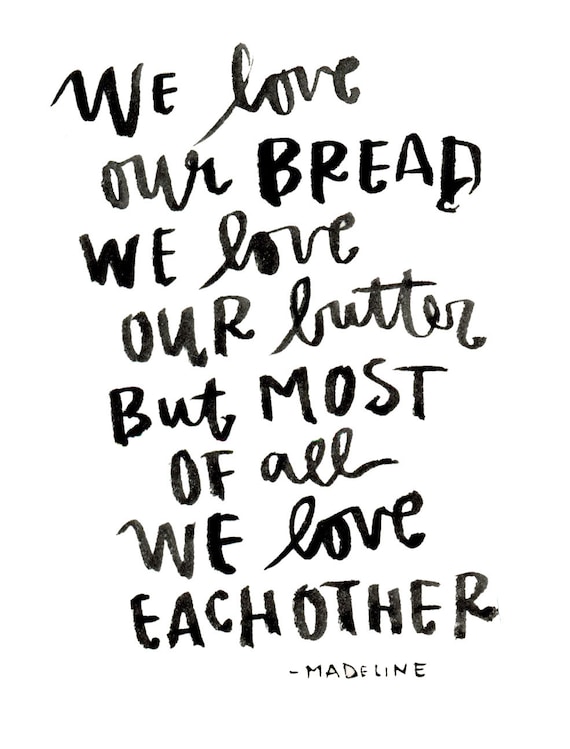 WE love
our BREAD
WE love
OUR butter
But MOST
OF all
WE love
EACHOTHER
-MADELINE